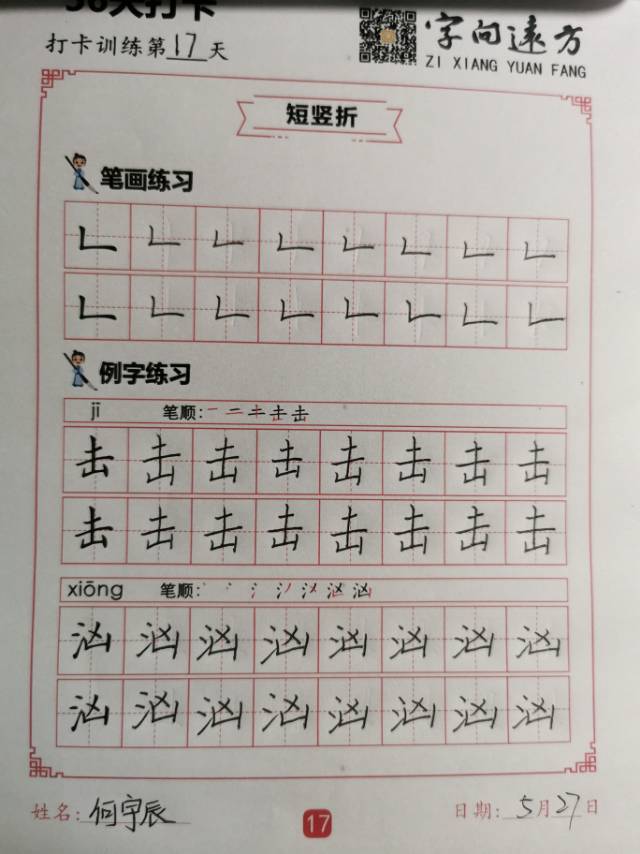 打卡训练第17天
字向远方
ZI XIANG YUAN FANG
短竖折
笔画练习
𠃊 𠃊 𠃊 𠃊 𠃊 𠃊 𠃊 𠃊
𠃊 𠃊 𠃊 𠃊 𠃊 𠃊 𠃊 𠃊
例字练习
jī 笔顺:一 二 キ 击 击
击 击 击 击 击 击 击 击
击 击 击 击 击 击 击 击
xiōng 笔顺: 汹
汹 汹 汹 汹 汹 汹 汹 汹
汹 汹 汹 汹 汹 汹 汹 汹
姓名:何宇辰
17
日期:5月27日